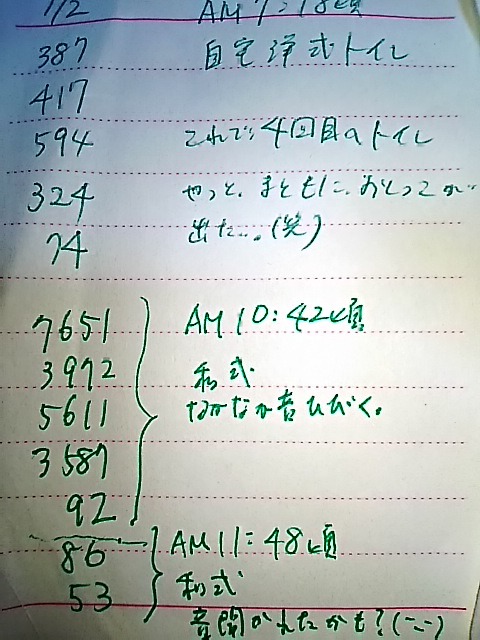 1/2 AM 7:18頃
387 自宅洋式トイレ
417
594 これで、4回目のトイレ
324 やっと、まともに、おとっこが
74 出た…(笑)
7651 AM 10:42頃
3972 和式
5611 なかなか音ひびく。
3587
92
86 AM 11:48頃
53 和式
音聞かれたかも?(--;)